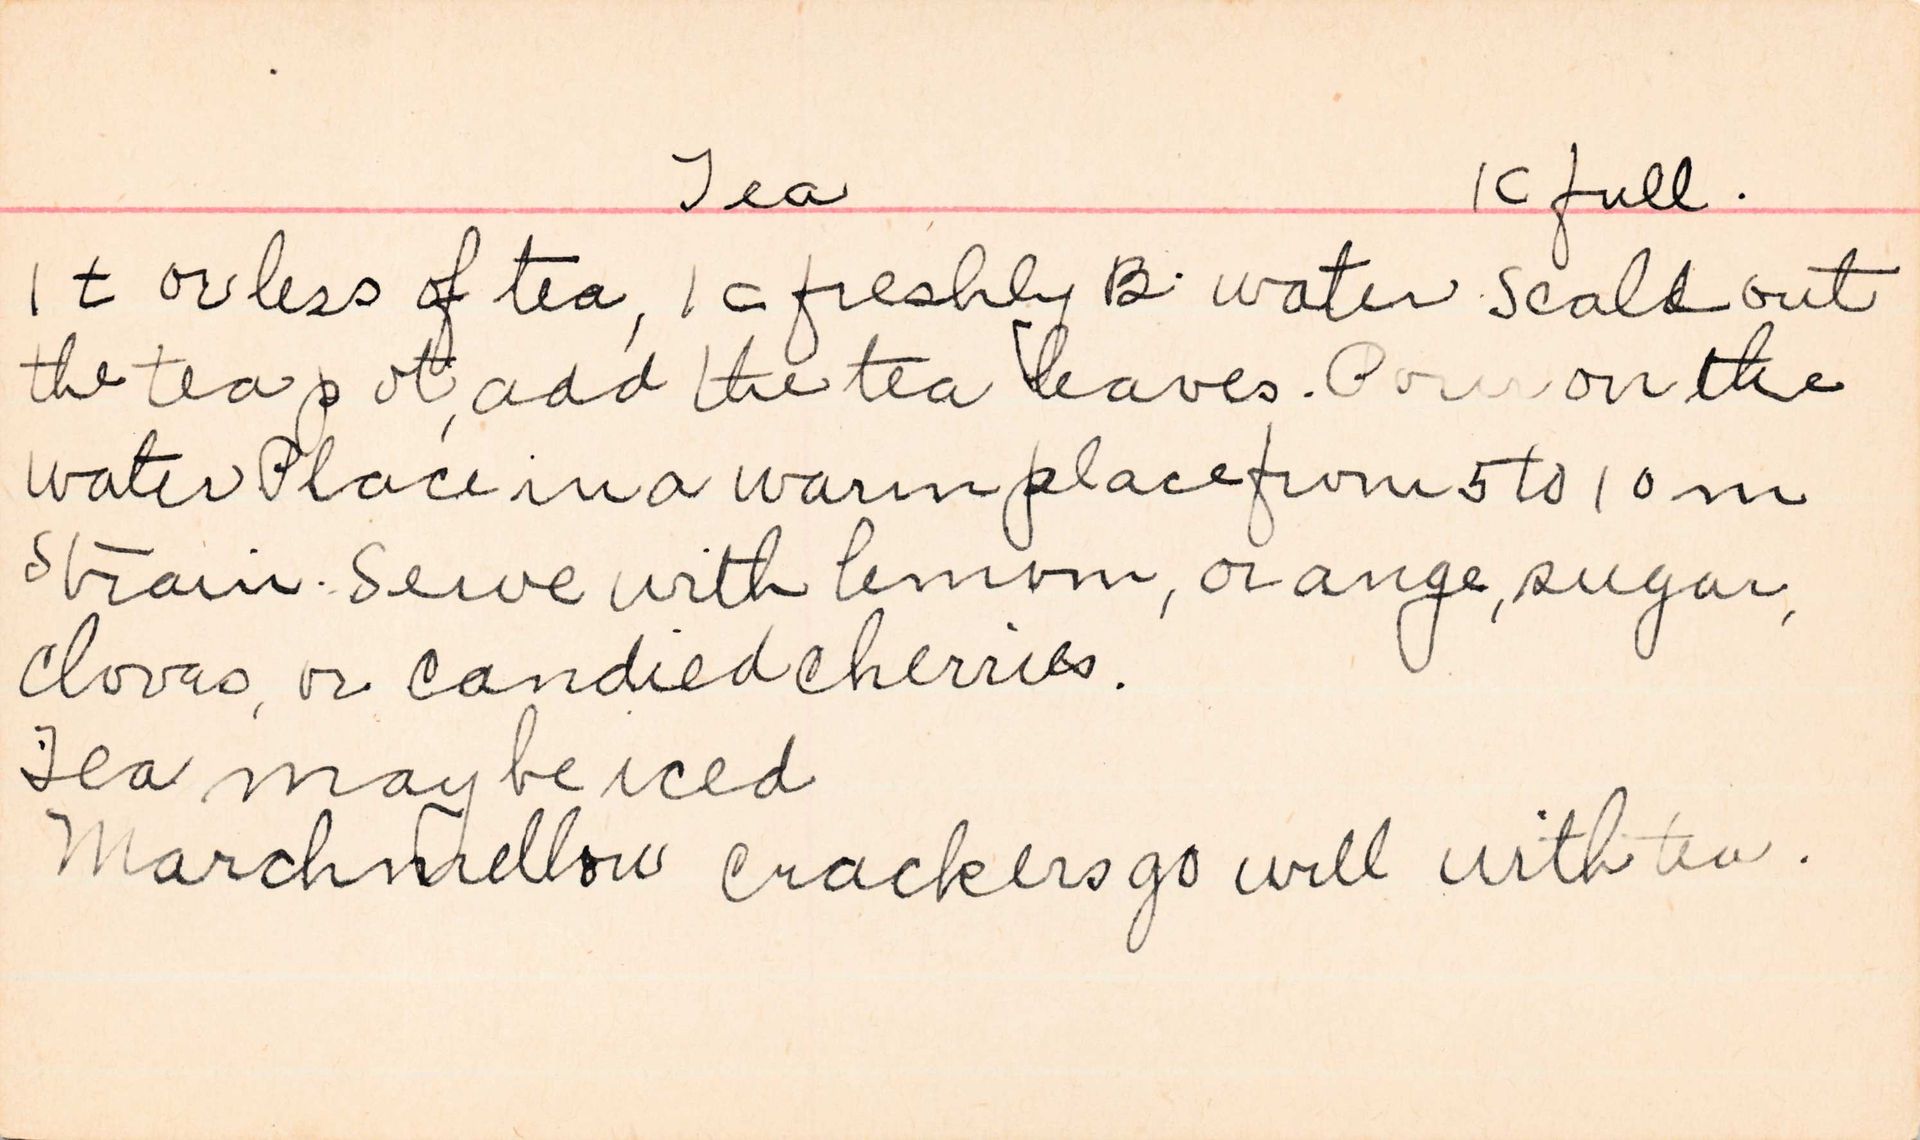 Tea 1c full.
1 t or less of tea, 1 c freshly B. water. Scald out
the tea pot, add the tea leaves. Pour on the
water Place in a warm place from 5 to 10 m
Strain. Serve with lemon, orange, sugar,
cloves, or candied cherries.
Tea may be iced
Marchmellow crackers go well with tea.